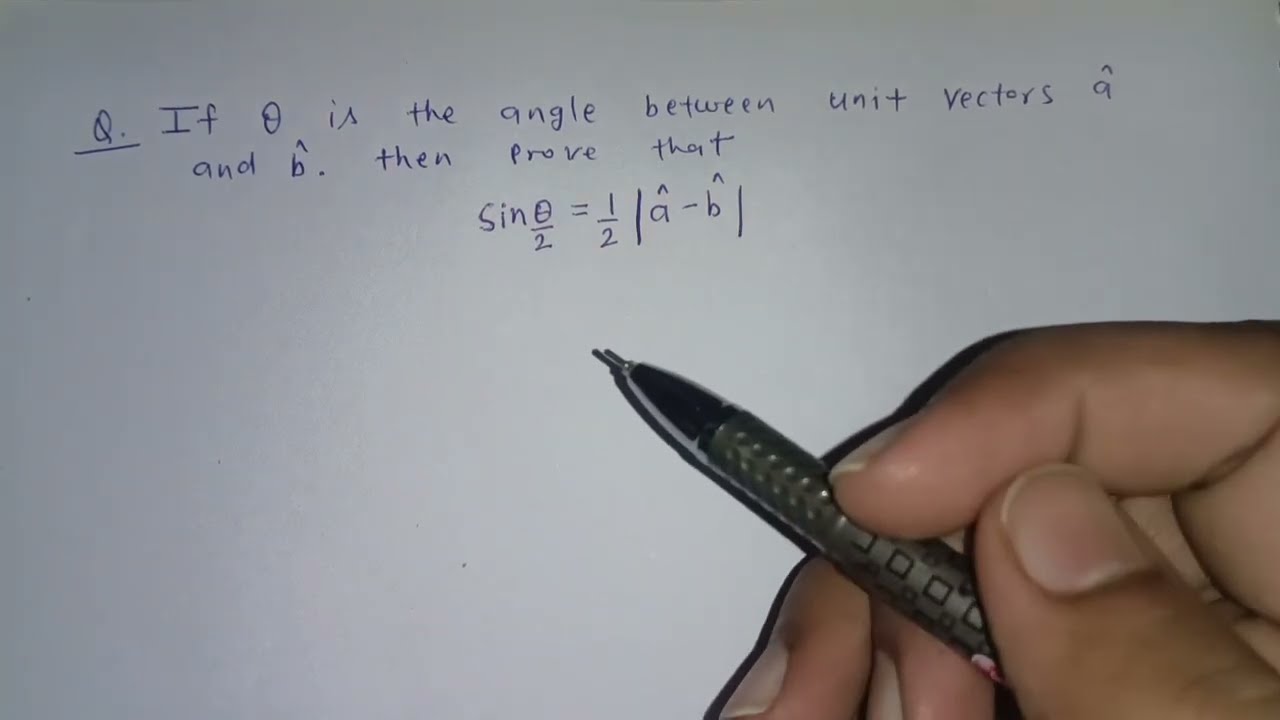 Q. If θ is the angle between unit vectors â
and b̂. then prove that
sin θ/2 = 1/2 |â - b̂|